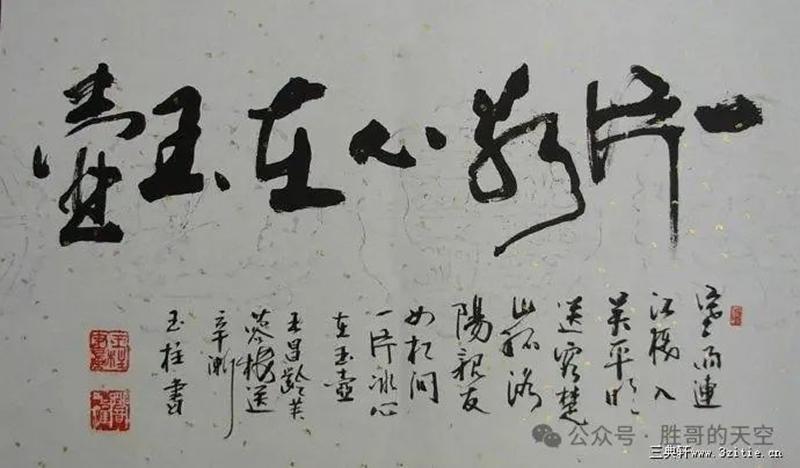 一片冰心在玉壺
寒雨連
江夜入
吴平明
送客楚
山孤洛
陽親友
如相問
一片冰心
在玉壺
王昌齡芙
蓉樓送
辛漸
玉柱書
公众号 · 胜哥的天空
三典轩www.3zitie.cn